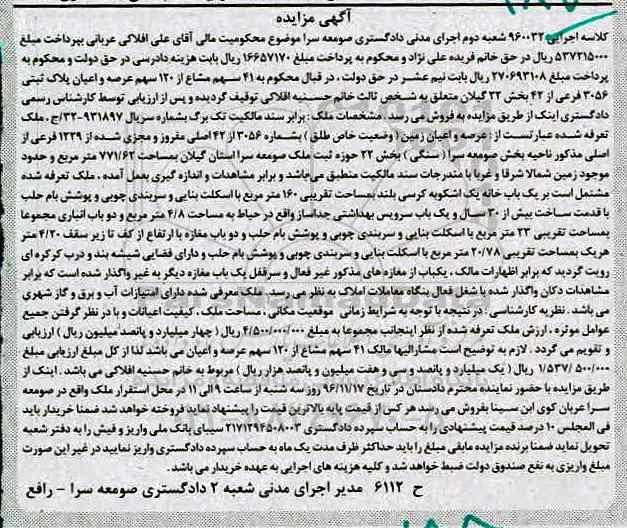 آگهی مزایده
کلاسه اجرایی ۹۶۰۰۳۲ شعبه دوم اجرای مدنی دادگستری صومعه سرا موضوع محکومیت مالی آقای علی افلاکی عربانی بپرداخت مبلغ
۵۳۷۲۱۵۰۰۰ ریال در حق خانم فریده علی نژاد و محکوم به پرداخت مبلغ ۱۶۶۵۷۱۷۰ ریال بابت هزینه دادرسی در حق دولت و محکوم به
پرداخت مبلغ ۲۷۰۶۹۳۱۰۸ ریال بابت نیم عشر در حق دولت ، در قبال محکوم به ۴۱ سهم مشاع از ۱۲۰ سهم عرصه و اعیان پلاک ثبتی
۳۰۵۶ فرعی از ۴۲ بخش ۲۲ گیلان متعلق به شخص ثالث خانم حسنیه افلاکی توقیف گردیده و پس از ارزیابی توسط کارشناس رسمی
دادگستری اینک از طریق مزایده به فروش می رسد . مشخصات ملک : برابر سند مالکیت تک برگ بشماره سریال ۹۳۱۸۹۷-۳۲/ج . ملک
تعرفه شده عبارتست از : عرصه و اعیان زمین ( وضعیت خاص طلق ) بشماره ۳۰۵۶ از ۴۲ اصلی مفروز و مجزی شده از ۱۲۲۹ فرعی از
اصلی مذکور ناحیه بخش صومعه سرا ( سنگی ) بخش ۲۲ حوزه ثبت ملک صومعه سرا استان گیلان بمساحت ۷۷۱/۶۲ متر مربع و حدود
موجود زمین شمالا شرقا و غربا با مندرجات سند مالکیت منطبق می‌باشد و برابر مشاهدات و اندازه گیری بعمل آمده ، ملک تعرفه شده
مشتمل است بر یک باب خانه یک اشکوبه کرسی بلند بمساحت تقریبی ۱۶۰ متر مربع با اسکلت بنایی و سربندی چوبی و پوشش بام حلب
با قدمت ساخت بیش از ۳۰ سال و یک باب سرویس بهداشتی جداساز واقع در حیاط به مساحت ۴/۸ متر مربع و دو باب انباری مجموعا
بمساحت تقریبی ۲۳ متر مربع با اسکلت بنایی و سربندی چوبی و پوشش بام حلب و دو باب مغازه با ارتفاع از کف تا زیر سقف ۴/۲۰ متر
هر یک بمساحت تقریبی ۲۰/۷۸ متر مربع با اسکلت بنایی و سربندی چوبی و پوشش بام حلب و دارای کفایی شیشه بند و درب کرکره ای
رویت گردید که برابر اظهارات مالک ، یکباب از مغازه های مذکور غیر فعال و سرقفل یک باب مغازه دیگر به غیر واگذار شده است که برابر
مشاهدات دکان واگذار شده با شغل فعال بنگاه معاملات املاک به نظر می رسد. ملک معرفی شده دارای امتیازات آب و برق و گاز شهری
می باشد . نظریه کارشناسی : در نتیجه با توجه به شرایط زمانی موقعیت مکانی ، مساحت ملک ، کیفیت اعیانات و با در نظر گرفتن جمیع
عوامل موثره ، ارزش ملک تعرفه شده از نظر اینجانب مجموعا به مبلغ ۴/۵۰۰/۰۰۰/۰۰۰ ریال ( چهار میلیارد و پانصد میلیون ریال ) ارزیابی
و تقویم می گردد . لازم به توضیح است مشارالیها مالک ۴۱ سهم مشاع از ۱۲۰ سهم عرصه و اعیان می باشد لذا از کل مبلغ ارزیابی مبلغ
۱/۵۳۷/۵۰۰/۰۰۰ ریال ( یک میلیارد و پانصد و سی و هفت میلیون و پانصد هزار ریال ) مربوط به خانم حسنیه افلاکی می باشد . اینک از
طریق مزایده با حضور نماینده محترم دادستان در تاریخ ۹۶/۱۱/۱۷ روز سه شنبه از ساعت ۹ الی ۱۱ در محل استقرار ملک واقع در صومعه
سرا عربان کوی ابن سینا بفروش می رسد هر کس از قیمت پایه بالاترین قیمت را پیشنهاد نماید فروخته خواهد شد ضمنا خریدار باید
فی المجلس ۱۰ درصد قیمت پیشنهادی را به حساب سپرده دادگستری ۲۱۷۱۲۹۴۵۰۸۰۰۳ سیبای بانک ملی واریز و فیش را به دفتر شعبه
تحویل نماید ضمنا برنده مزایده مابقی مبلغ را باید حداکثر ظرف مدت یک ماه به حساب سپرده دادگستری واریز نمایید در غیر این صورت
مبلغ واریزی به نفع صندوق دولت ضبط خواهد شد و کلیه هزینه های اجرایی به عهده خریدار می باشد .
ح ۶۱۱۲ مدیر اجرای مدنی شعبه ۲ دادگستری صومعه سرا - رافع